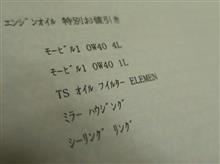 エンジンオイル 特別お値引き
モービル1 0W40 4L
モービル1 0W40 1L
TS オイル フイルター ELEMEN
ミラー ハウジング
シーリング リング